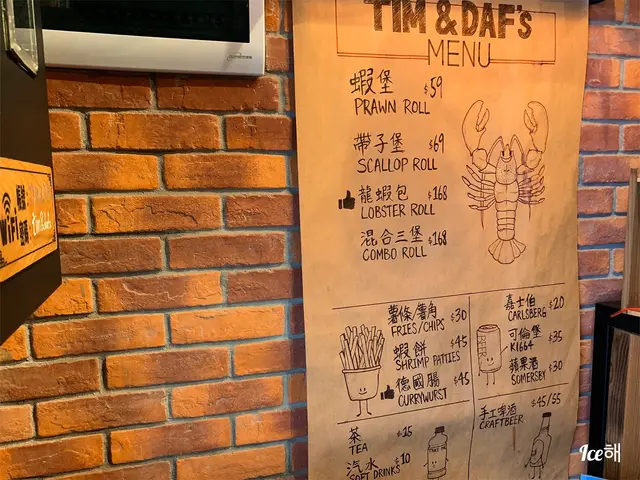 TIM & DAF's
MENU
蝦堡 $59
PRAWN ROLL
帶子堡 $69
SCALLOP ROLL
龍蝦包 $168
LOBSTER ROLL
混合三堡 $168
COMBO ROLL
薯條/薯角 $30
FRIES/CHIPS
蝦餅 $45
SHRIMP PATTIES
德國腸 $45
CURRYWURST
茶 $15
TEA
汽水 $10
SOFT DRINKS
嘉士伯 $20
CARLSBERG
可倫堡 $35
K1664
蘋果酒 $30
SOMERSBY
手工啤酒 $45/55
CRAFTBEER
BEER
WiFi
Ice해